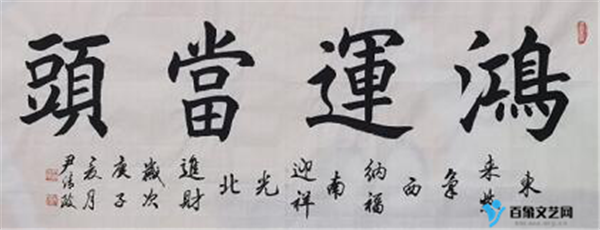 鴻運當頭
東来紫氣西納福南迎祥光北進財
歲次庚子夏月
百象文艺网